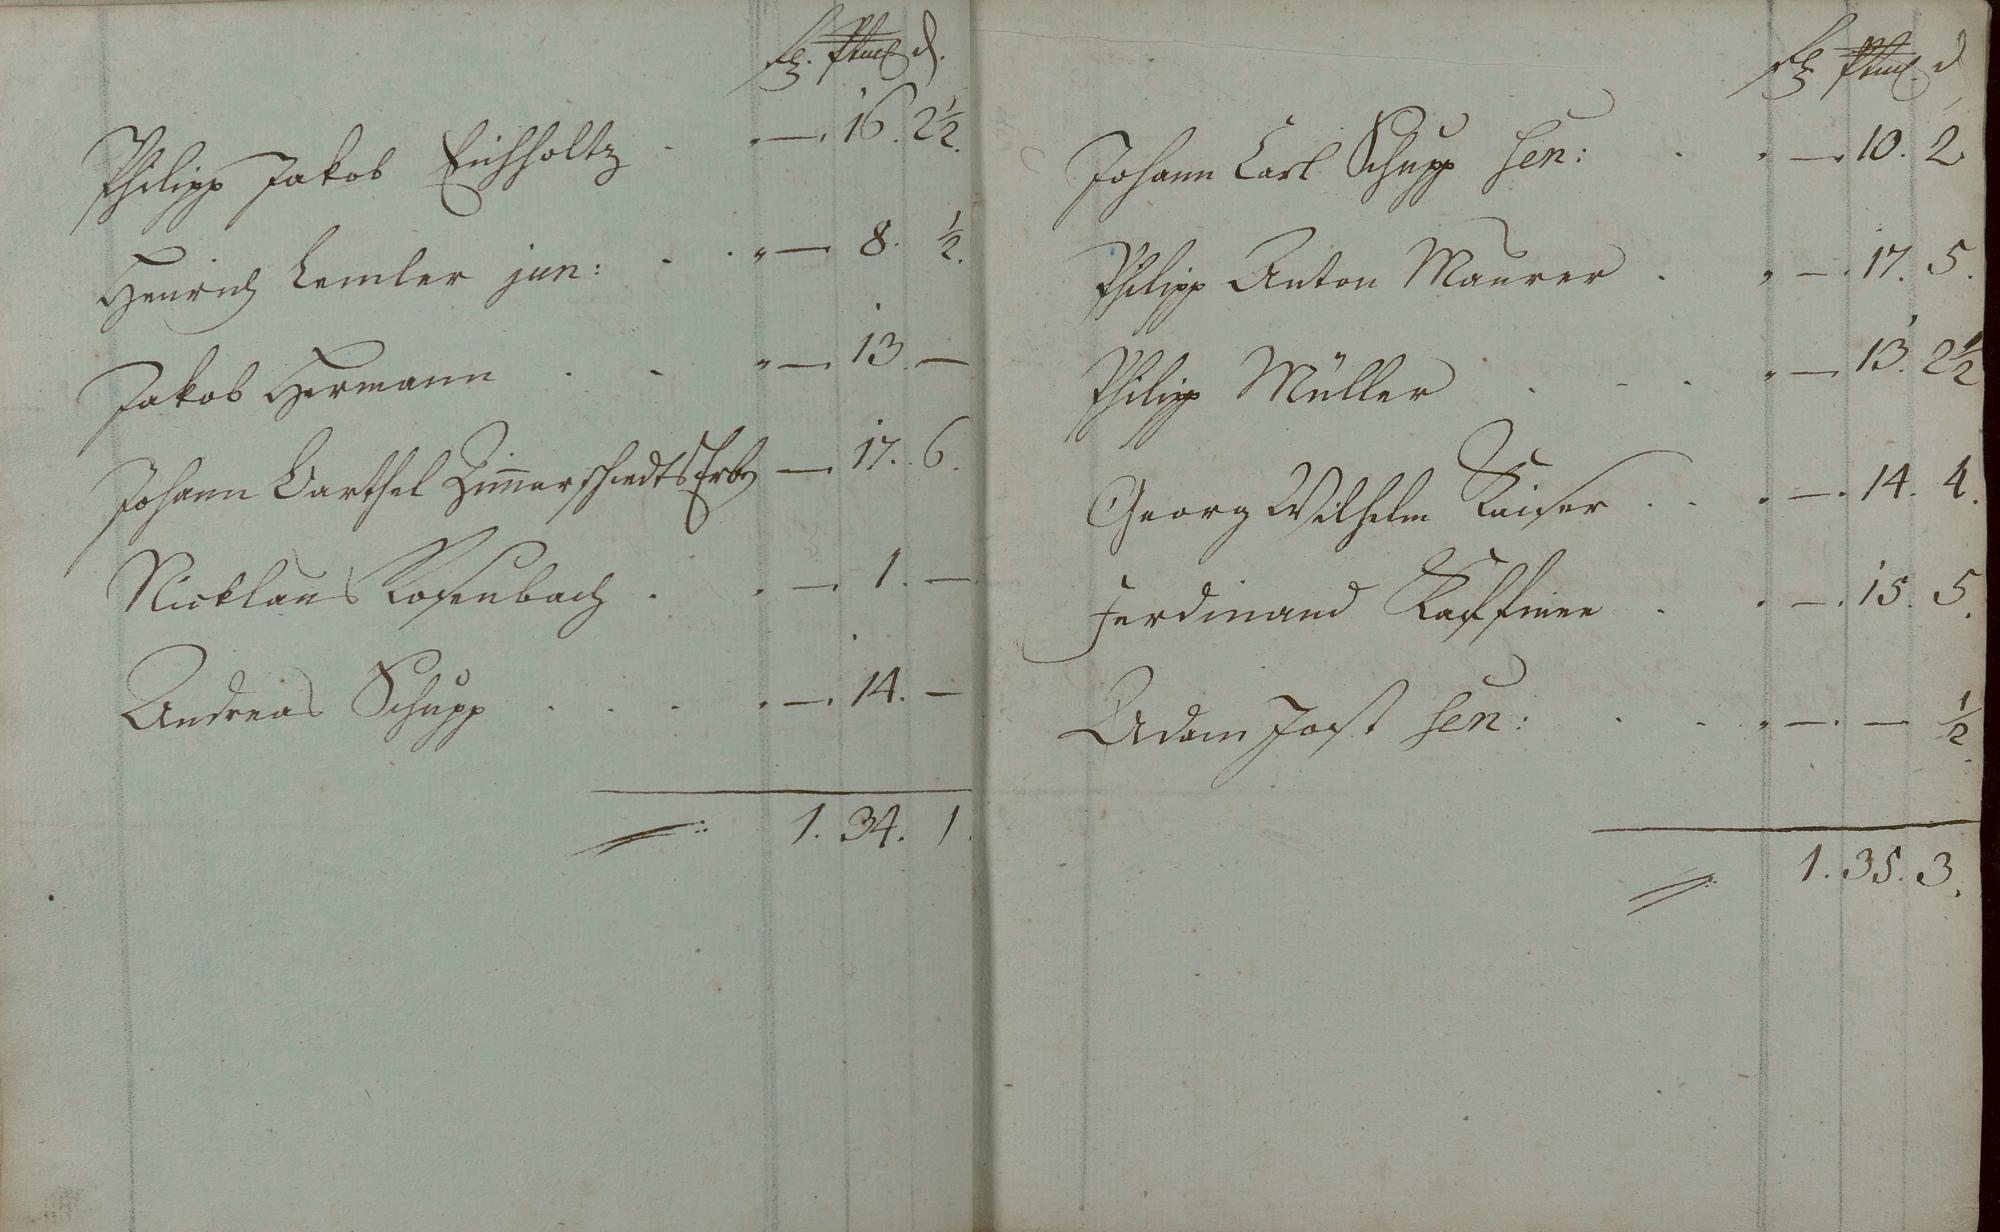 Philipp Jakob Eichholtz . . — . 16. 2½.
Henrich Lemler jun: . . „ — . 8. ½.
Jakob Hermann . . „ — . 13. —
Johann Barthel Zimmerschiedts Erb — . 17. 6.
Nicklaus Rosenbach . . — . 1. —
Andreas Schupp . . . . — . 14. —
1. 34. 1.
d
Johann Carl Schupp sen: . . — . 10. 2
Philipp Anton Maurer . „ — . 17. 5.
Philipp Müller . . . „ — 13. 2½
Georg Wilhelm Kaiser . . . — . 14. 4.
Ferdinand . . — . 15. 5.
Adam Jost sen: . . „ — . — ½
1. 35. 3.